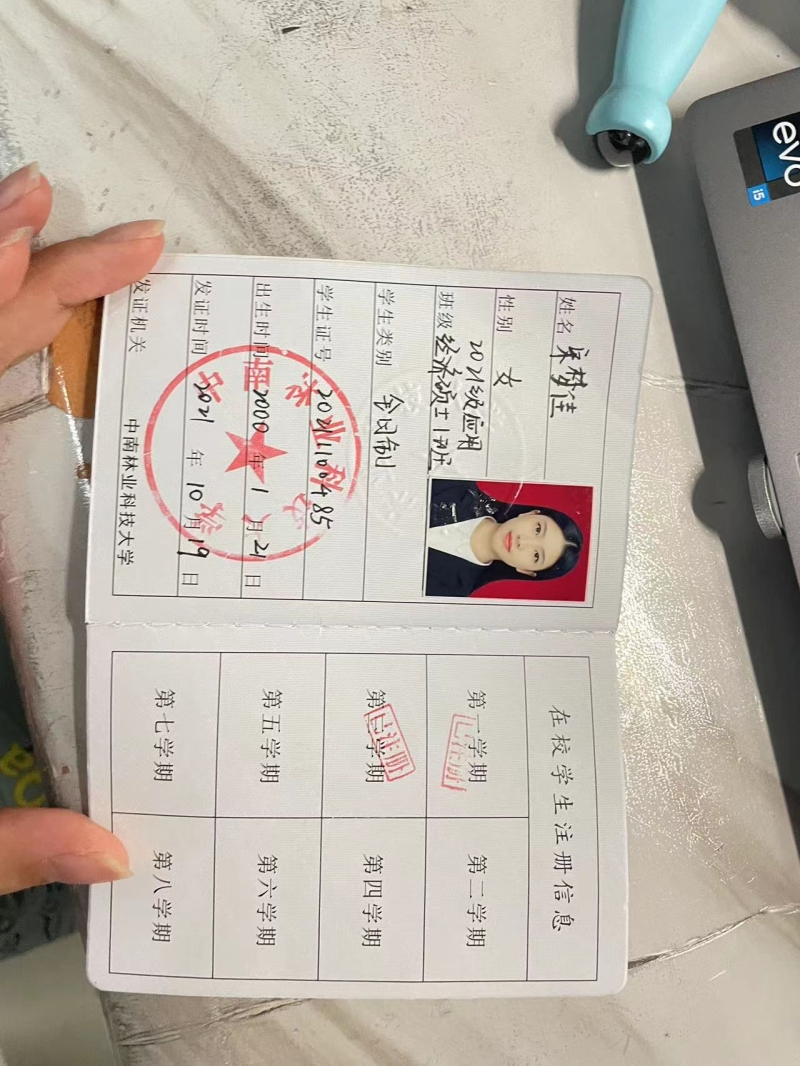 姓名 宋梦佳
性别 女
班级 2021级应用
经济硕士1班
学生类别 全日制
学生证号 20211100485
出生时间 2000 年 1 月 21 日
发证时间 2021 年 10 月 19 日
发证机关 中南林业科技大学
在校学生注册信息
第一学期 已注册 第二学期
第三学期 已注册 第四学期
第五学期 第六学期
第七学期 第八学期
evo
i5